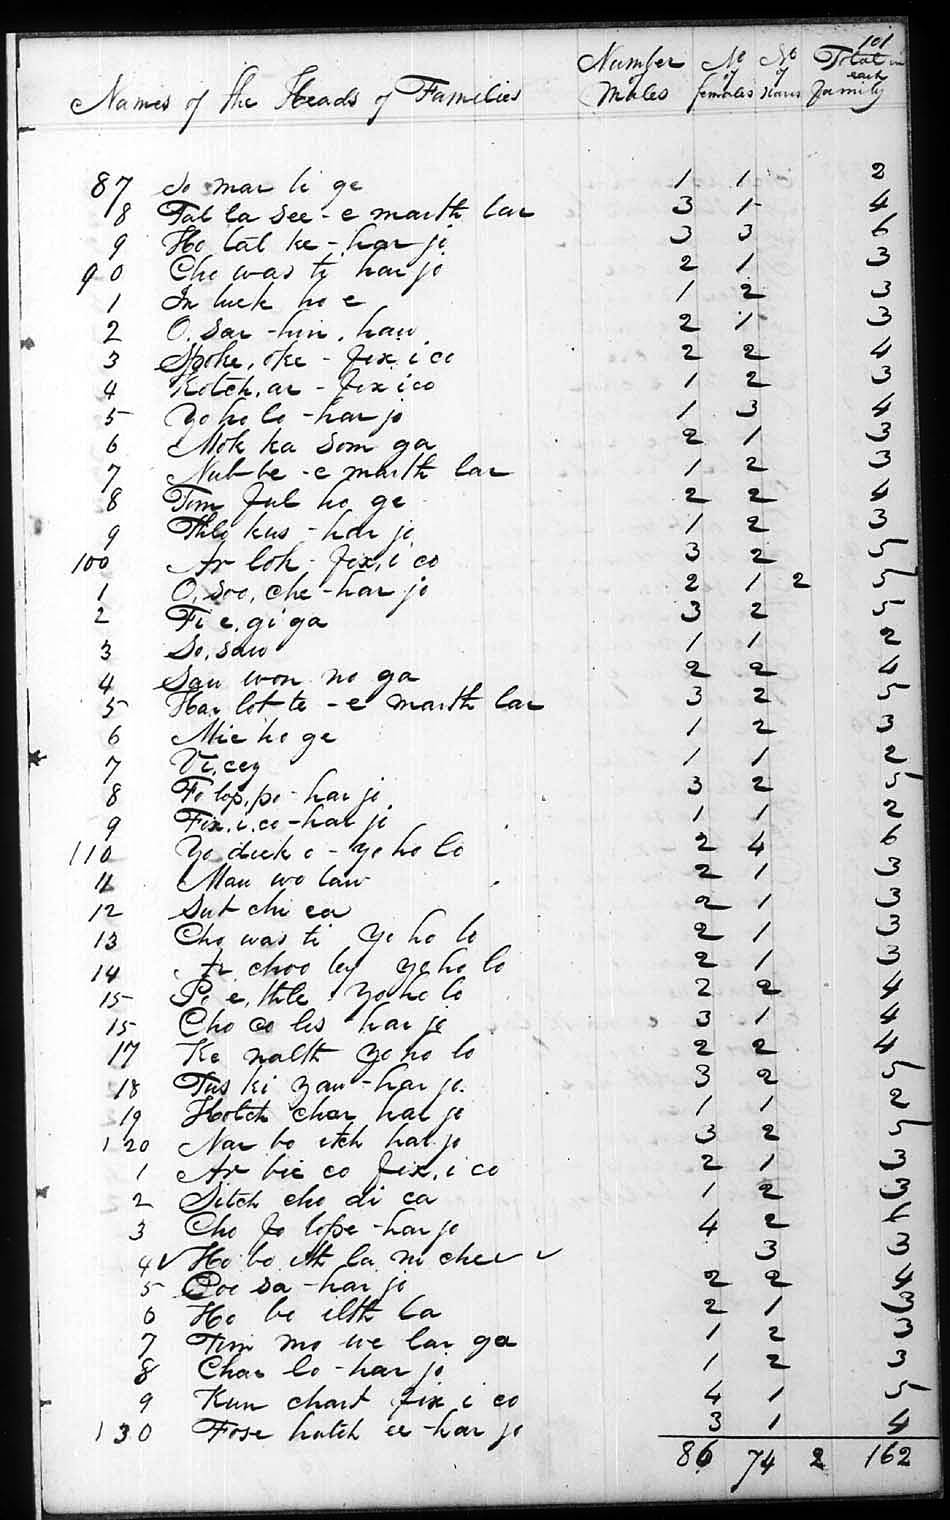 101
Names of the Heads of Families Number of Males No of females No of slaves Total in each family
87 So mar li ge 1 1 2
8 Tal la see - e marth lar 3 1 4
9 Ho tal ke - har jo 3 3 6
90 Cho was ti har jo 2 1 3
1 In luck ho e 1 2 3
2 O, sar - hin, haw 2 1 3
3 Spoke, oke - fix i co 2 2 4
4 Kotch, ar - fix i co 1 2 3
5 Yo ho lo - har jo 1 3 4
6 Mok ka som ga 2 1 3
7 Nub be - e marth lar 1 2 3
8 Tom Jul ho ge 2 2 4
9 Thlo kus - har jo 1 2 3
100 Ar lok - fix, i co 3 2 5
1 O, soo, che - har jo 2 1 2 5
2 Fi e, gi ga 3 2 5
3 So, saw 1 1 2
4 Sau won no ga 2 2 4
5 Har lot te - e marth lar 3 2 5
6 Mic ho ge 1 2 3
7 Vi, cey 1 1 2
8 Fo lop, po - har jo 3 2 5
9 Fix, i, co - har jo 1 1 2
110 Yo dick o - yo ho lo 2 4 6
11 Mau wo law 2 1 3
12 Sut chi ca 2 1 3
13 Cho was ti Yo ho lo 2 1 3
14 Ar choo ley yo ho lo 2 1 3
15 Po e, thle Yo ho lo 2 2 4
15 Cho co les har jo 3 1 4
17 Ke nalth Yo ho lo 2 2 4
18 Tus ki yau - har jo 3 2 5
19 Hotch char har jo 1 1 2
120 Nar bo itch har jo 3 2 5
1 Ar bic co fix, i co 2 1 3
2 Sitch cho di ca 1 2 3
3 Cho fo lope - har jo 4 2 6
4 Ho bo ith la ni chee 3 3
5 Coo sa - har jo 2 2 4
6 Ho bo ilth la 2 1 3
7 Tim mo we lar ga 1 2 3
8 Char lo - har jo 1 2 3
9 Kun chart fix i co 4 1 5
130 Fose hatch ee - har jo 3 1 4
86 74 2 162